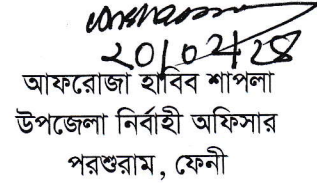 ২০/০২/২৪
আফরোজা হাবিব শাপলা
উপজেলা নির্বাহী অফিসার
পরশুরাম, ফেনী